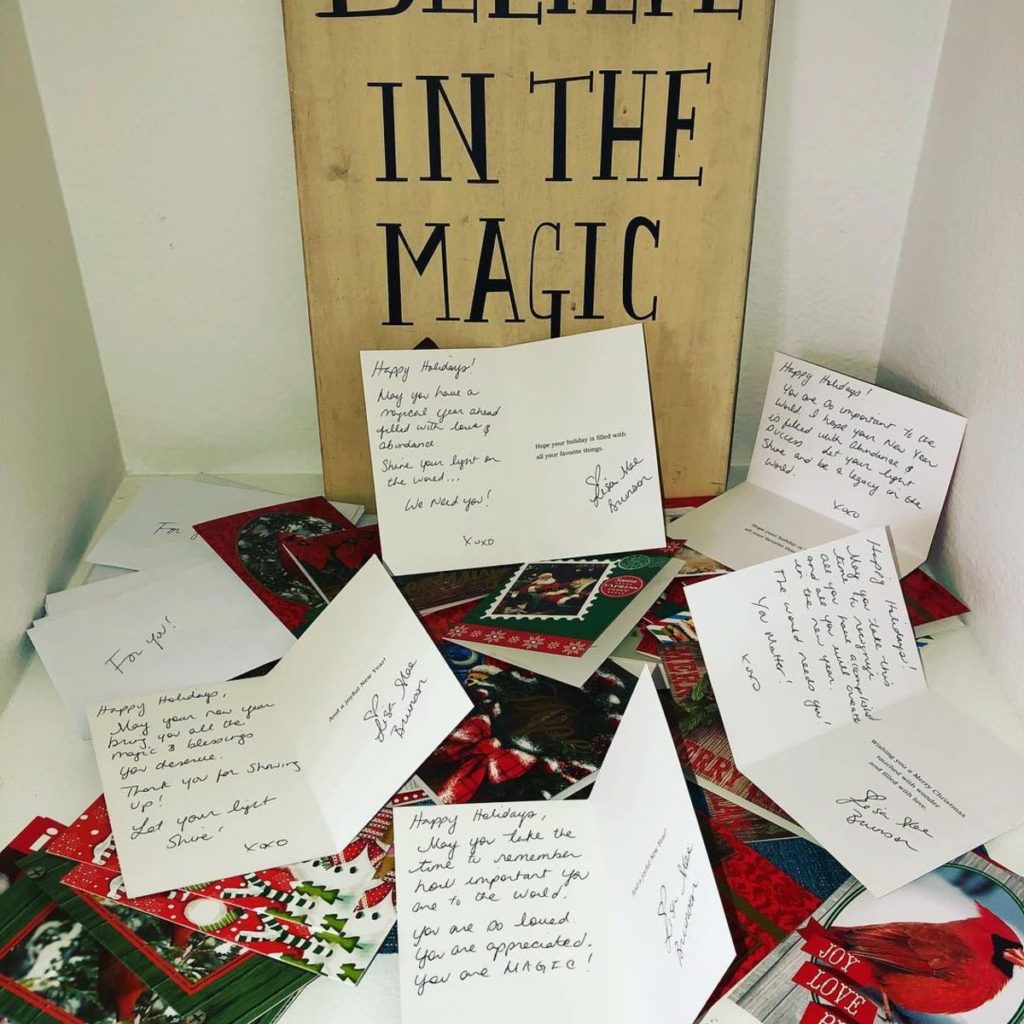 BELIEVE
IN THE
MAGIC
Happy Holidays!
May you have a
magical year ahead
filled with love &
abundance.
Shine your light on
the world...
We Need you!
xoxo
Hope your holiday is filled with
all your favorite things.
Lisa Mae
Brunson
Happy Holidays!
You are so important to the
world. I hope your New Year
is filled with abundance &
success. Let your light
shine and be a legacy in the
world.
xoxo
Hope your holiday is filled with
all your favorite things.
For you!
For you!
Santa
EXPRESS
Happy Holidays!
May you take this
time to recognize
all you have accomplished
and all you will create
in the new year.
The world needs you!
You Matter!
xoxo
Wishing you a Merry Christmas
touched with wonder
and filled with love.
Lisa Mae
Brunson
Happy Holidays,
May your new year
bring you all the
magic & blessings
you deserve.
Thank you for showing
up!
Let your light
Shine!
xoxo
And a joyful New Year!
Lisa Mae
Brunson
MERRY
MERRY
Happy Holidays,
May you take the
time to remember
how important you
are to the world.
you are so loved
You are appreciated.
you are MAGIC!
And a joyful New Year!
Lisa Mae
Brunson
JOY
LOVE